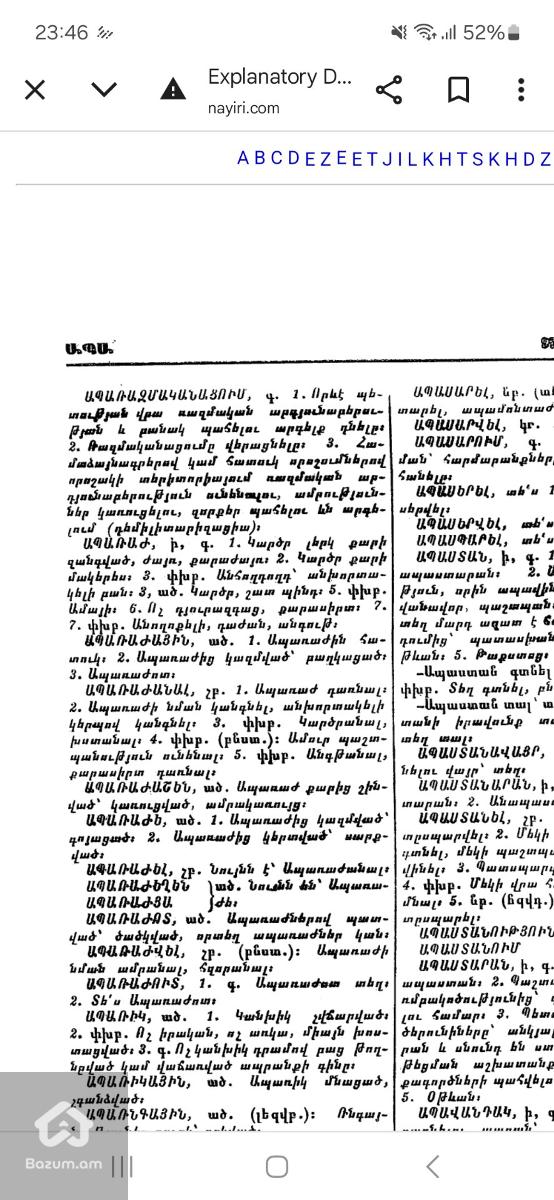 23:46
52%
Explanatory D...
nayiri.com
A B C D E Z E E T J I L K H T S K H D Z
ԱՊԱ
ԱՊԱՌԱԶՄԱԿԱՆԱՑՈՒՄ, գ. 1. Որևէ պե-
տության վրա ռազմական արդյունաբերու-
թյան և բանակ պահելու արգելք դնելը։
2. Ռազմականացումը վերացնելը։ 3. Հա-
մաձայնագրերով կամ հատուկ որոշումներով
որոշակի տերիտորիայում ռազմական ար-
դյունաբերություն ունենալու, ամրություն-
ներ կառուցելու, զորքեր պահելու են արգե-
լում (դեմիլիտարիզացիա)։
ԱՊԱՌԱԺ, ի, գ. 1. Կարծր լերկ քարի
զանգված, ժայռ, քարաժայռ։ 2. Կարծր քարի
մակերես։ 3. փխբ. Անհողդողդ՝ անխորտա-
կելի բան։ 3, ած. Կարծր, շատ պինդ։ 5. փխբ.
Ամայի։ 6. Ոչ դյուրազգաց, քարասիրտ։ 7.
7. փխբ. Անողոքելի, դաժան, անգութ։
ԱՊԱՌԱԺԱՅԻՆ, ած. 1. Ապառաժին հա-
տուկ։ 2. Ապառաժից կազմված՝ բաղկացած։
3. Ապառաժոտ։
ԱՊԱՌԱԺԱՆԱԼ, չբ. 1. Ապառաժ դառնալ։
2. Ապառաժի նման կանգնել, անխորտակելի
կերպով կանգնել։ 3. փխբ. Կարծրանալ,
խստանալ։ 4. փխբ. (բնստ.)։ Ամուր պաշտ-
պանություն ունենալ։ 5. փխբ. Անգթանալ,
քարասիրտ դառնալ։
ԱՊԱՌԱԺԱՇԵՆ, ած. Ապառաժ քարից շին-
ված՝ կառուցված, ամրակառույց։
ԱՊԱՌԱԺԵ, ած. 1. Ապառաժից կազմված՝
գոյացած։ 2. Ապառաժից կերտված՝ սարք-
ված։
ԱՊԱՌԱԺԵԼ, չբ. Նույնն է՝ Ապառաժանալ։
ԱՊԱՌԱԺԵՂԵՆ } ած. Նույնն են՝ Ապառա-
ԱՊԱՌԱԺՅԱ } ժե։
ԱՊԱՌԱԺՈՏ, ած. Ապառաժներով պատ-
ված՝ ծածկված, որտեղ ապառաժներ կան։
ԱՊԱՌԱԺՎԵԼ, չբ. (բնստ.)։ Ապառաժի
նման ամրանալ, հզորանալ։
ԱՊԱՌԱԺՈՒՏ, 1. գ. Ապառաժոտ տեղ։
2. Տե՛ս Ապառաժոտ։
ԱՊԱՌԻԿ, ած. 1. Կանխիկ չվճարված։
2. փխբ. Ոչ իրական, ոչ առկա, միայն խոս-
տացված։ 3. գ. Ոչ կանխիկ դրամով բաց թող-
նըված կամ վաճառված ապրանքի գինը։
ԱՊԱՌԻԿԱՅԻՆ, ած. Ապառիկ մնացած,
չգանձված։
ԱՊԱՌՆԳԱՅԻՆ, ած. (լեզվբ.)։ Ռնգայ-
ԱՊԱՍԱՐԵԼ, նբ.
տարել, ապամոնտաժ
ԱՊԱՍԱՐՎԵԼ, կբ.
ԱՊԱՍԱՐՈՒՄ, գ.
ման՝ հարմարանքներ
հանելը։
ԱՊԱՍԵՐԵԼ, տե՛ս
սերվել։
ԱՊԱՍԵՐՎԵԼ, տե՛ս
ԱՊԱՍՊԱՐԵԼ, տե՛ս
ԱՊԱՍՏԱՆ, ի, գ. 1
ապաստարան։ 2. Ա
թյուն, որին ապավին
վանավոր, պաշտպան
տեղ մարդ ազատ է
դումից՝ պատասխան
թևան։ 5. Թաքստոց։
—Ապաստան գտնել
փխբ. Տեղ գտնել, բն
—Ապաստան տալ
տանի իրավունք տ
տեղ տալ։
ԱՊԱՍՏԱՆԱՎԱՅՐ,
նելու վայր՝ տեղ։
ԱՊԱՍՏԱՆԱՐԱՆ, ի,
տարան։ 2. Անապաս
ԱՊԱՍՏԱՆԵԼ, չբ.
տըսպարվել։ 2. Մեկի
գտնել, մեկի պաշտպ
վինել։ 3. Պատսպար
4. փխբ. Մեկի վրա հ
մնալ։ 5. նբ. (հզվդ.)
տըսպարել։
ԱՊԱՍՏԱՆՈՒԹՅՈՒՆ
ԱՊԱՍՏԱՆՈՒՄ
ԱՊԱՍՏԱՐԱՆ, ի, գ.
ապաստան։ 2. Պաշտ
ռմբակոծությունից՝
լու համար։ 3. Պետ
ծերունիները՝ անկյալ
րան և սնունդ են ստ
թեցման աշխատանք
քագործների պահվել
5. Օթևան։
ԱՊԱՎԱՆԴԱԿ, ի, գ
Bazum.am